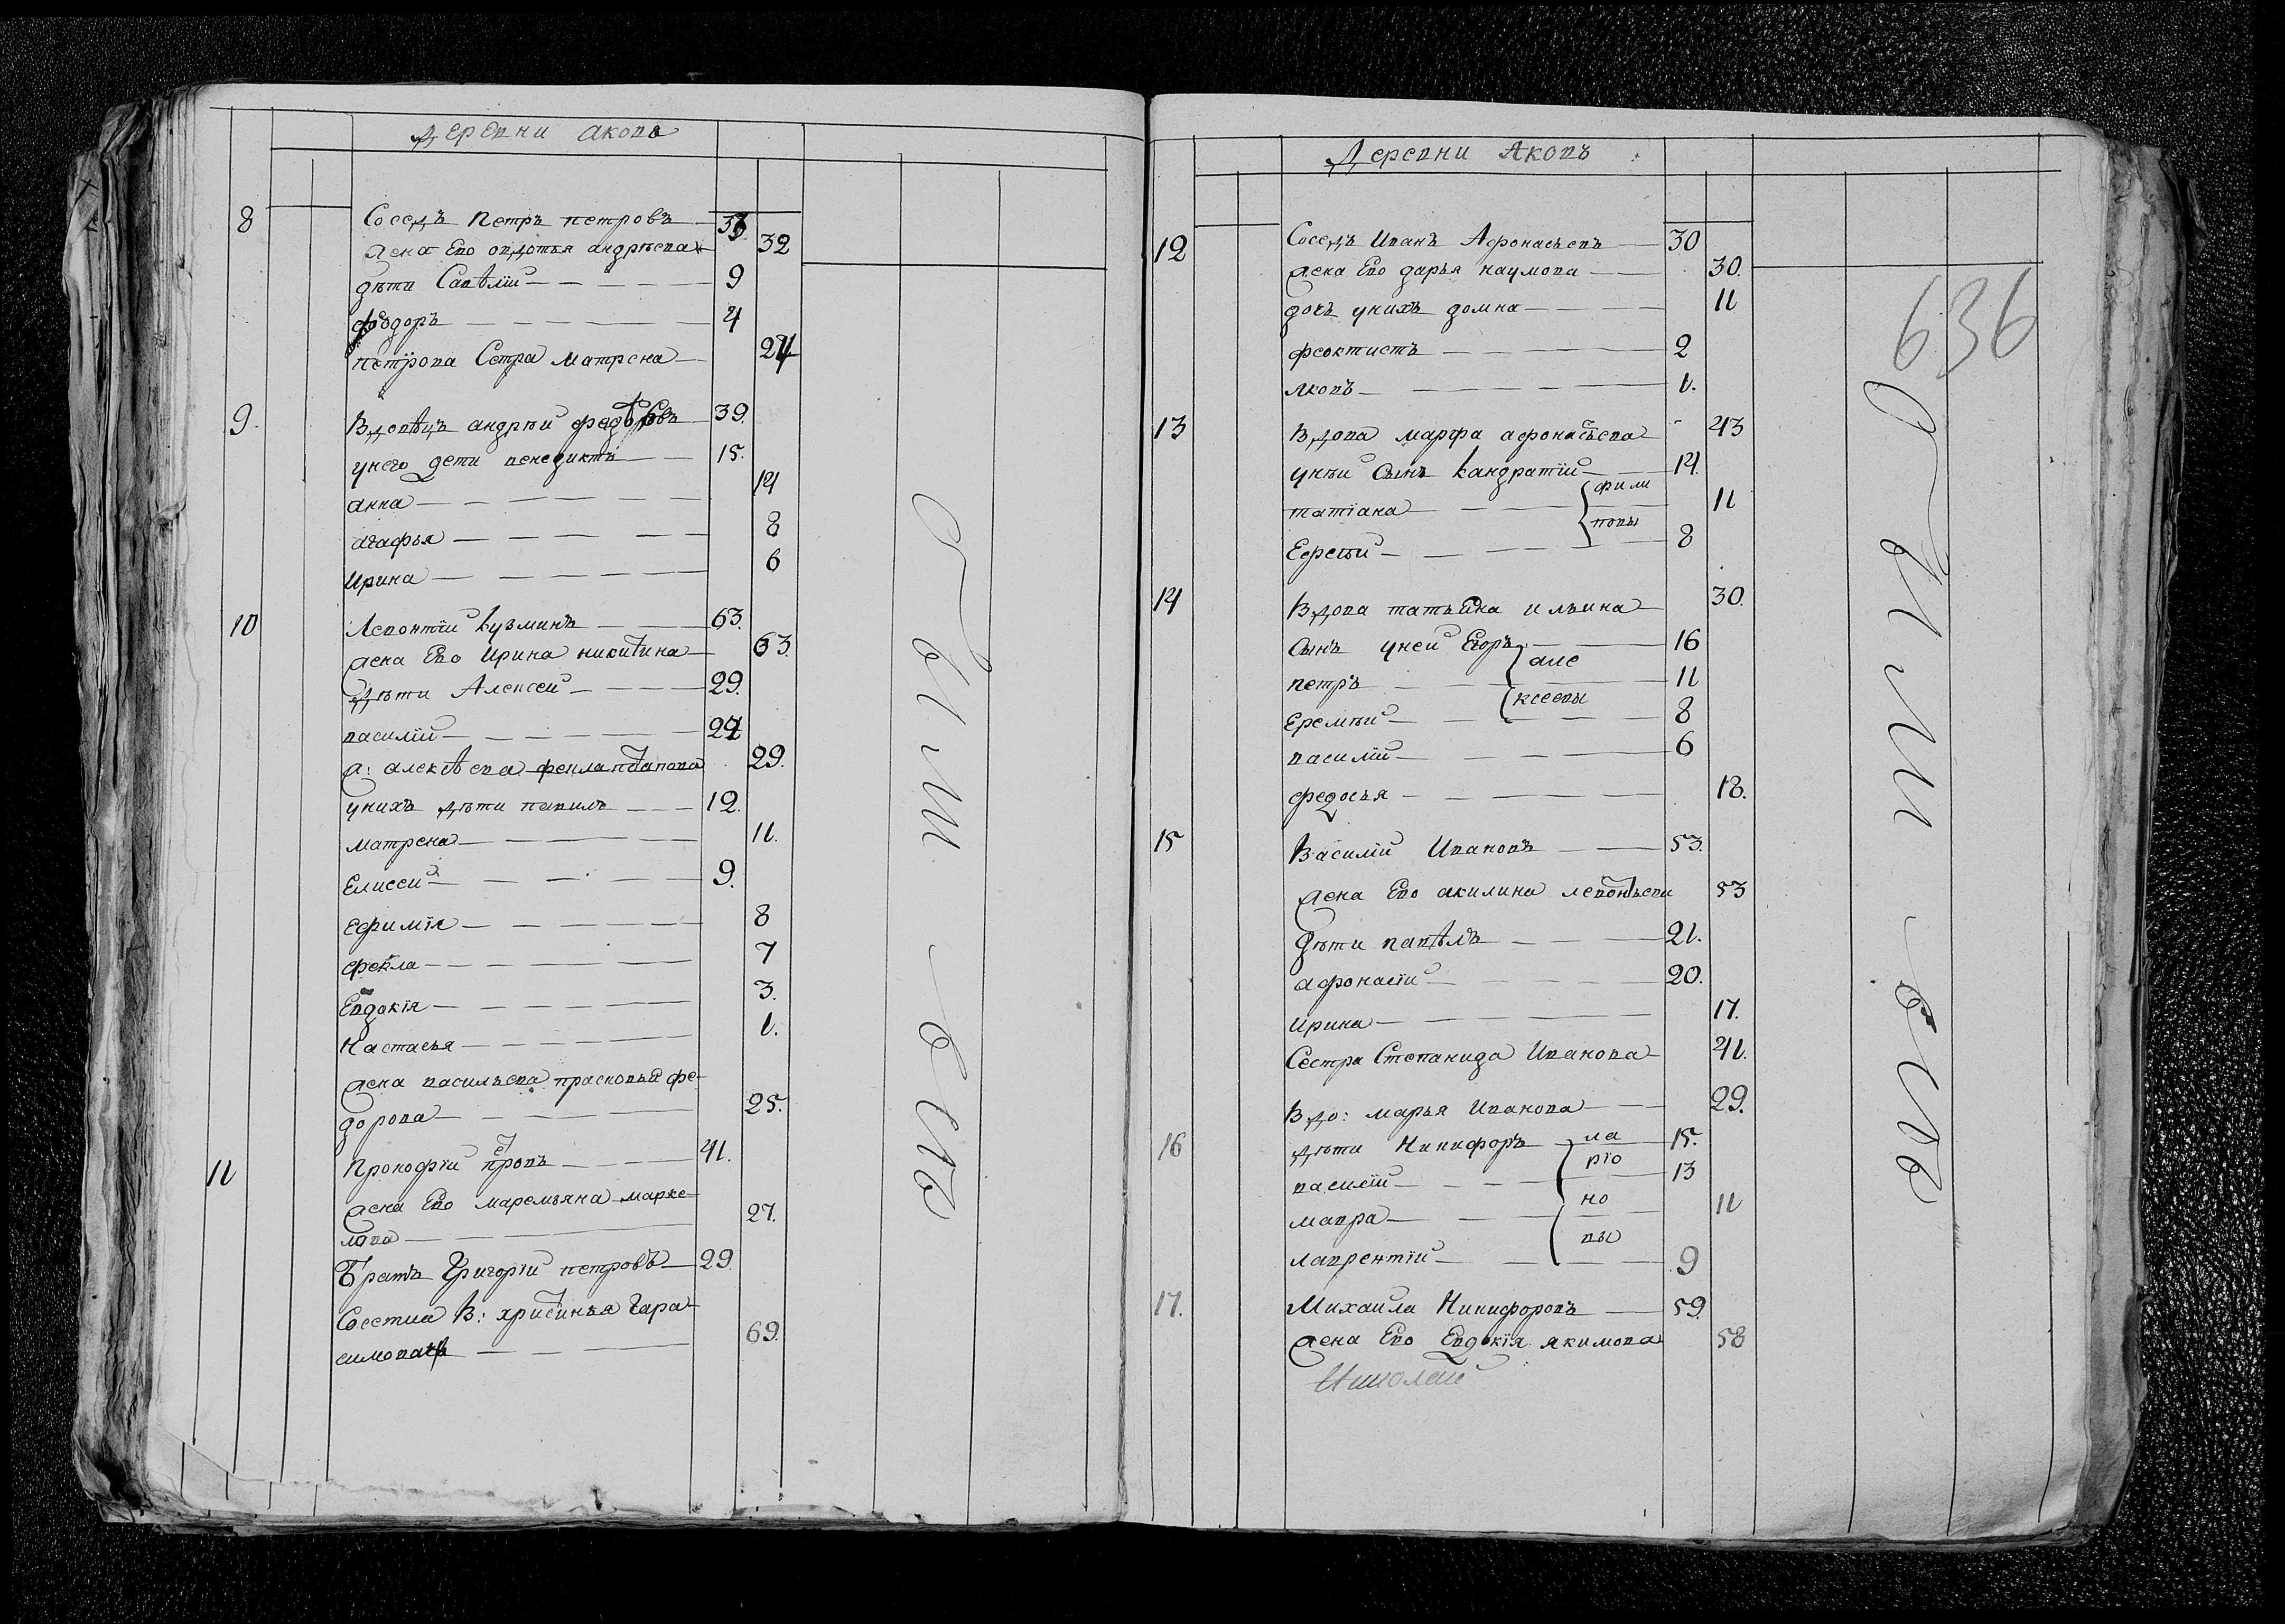 деревни акова
8 Соседъ Петръ петровъ 33
жена Ево овдотья андрѣева 32
дѣти Савѣлiй 9
федоръ 4
петрова Сетра матрена 24
9 Вдовѣцъ андрѣй федоровъ 39.
унего дети венедиктъ 15.
анна 14
агафья 8
ирина 6
10 Левонтiй кузминъ 63.
жена Ево Ирина никитина 63.
Дѣти Алексей 29.
василiй 27
ж: алекѣева
29.
унихъ дѣти павилъ 12.
матрена 11.
Елисей 9.
ефимiя 8
фекла 7
Евдокiя 3.
Настасья 1.
жена васильева прасковья фе-
дорова 25.
11 Прокофiй 41.
жена Ево маремьяна марке-
лова 27.
Братъ Григорiй петровъ 29.
В: христинья Гара-
симова 69.
Деревни Яковъ
636
12 Соседъ Иванъ Афонасьевъ 30
жена Ево дарья наумова 30.
дочь унихъ домна 11
феоктистъ 2
яковъ 1.
13 Вдова марфа афонасьева 43
унѣй сынъ кандратiй 14.
татiана фили 11
повы
Ефсѣй 8
14 Вдова татьяна ильина 30.
сынъ уней Егоръ 16
але
петръ 11
ксеевы
Еремѣй 8
василiй 6
федосья 18.
15 Василiй Ивановъ 53.
жена Ево акилина левонтьева 53
дѣти павѣлъ 21.
афонасiй 20.
ирина 17.
Сестра Степанида Иванова 41.
Вдо: марья Иванова 29.
16 дѣти Никифоръ ла 15.
рiо
василiй 13
но
мавра 11
вы
лаврентiй 9
17. Михаила Никифоровъ 59.
жена Ево Евдокiя якимова 58